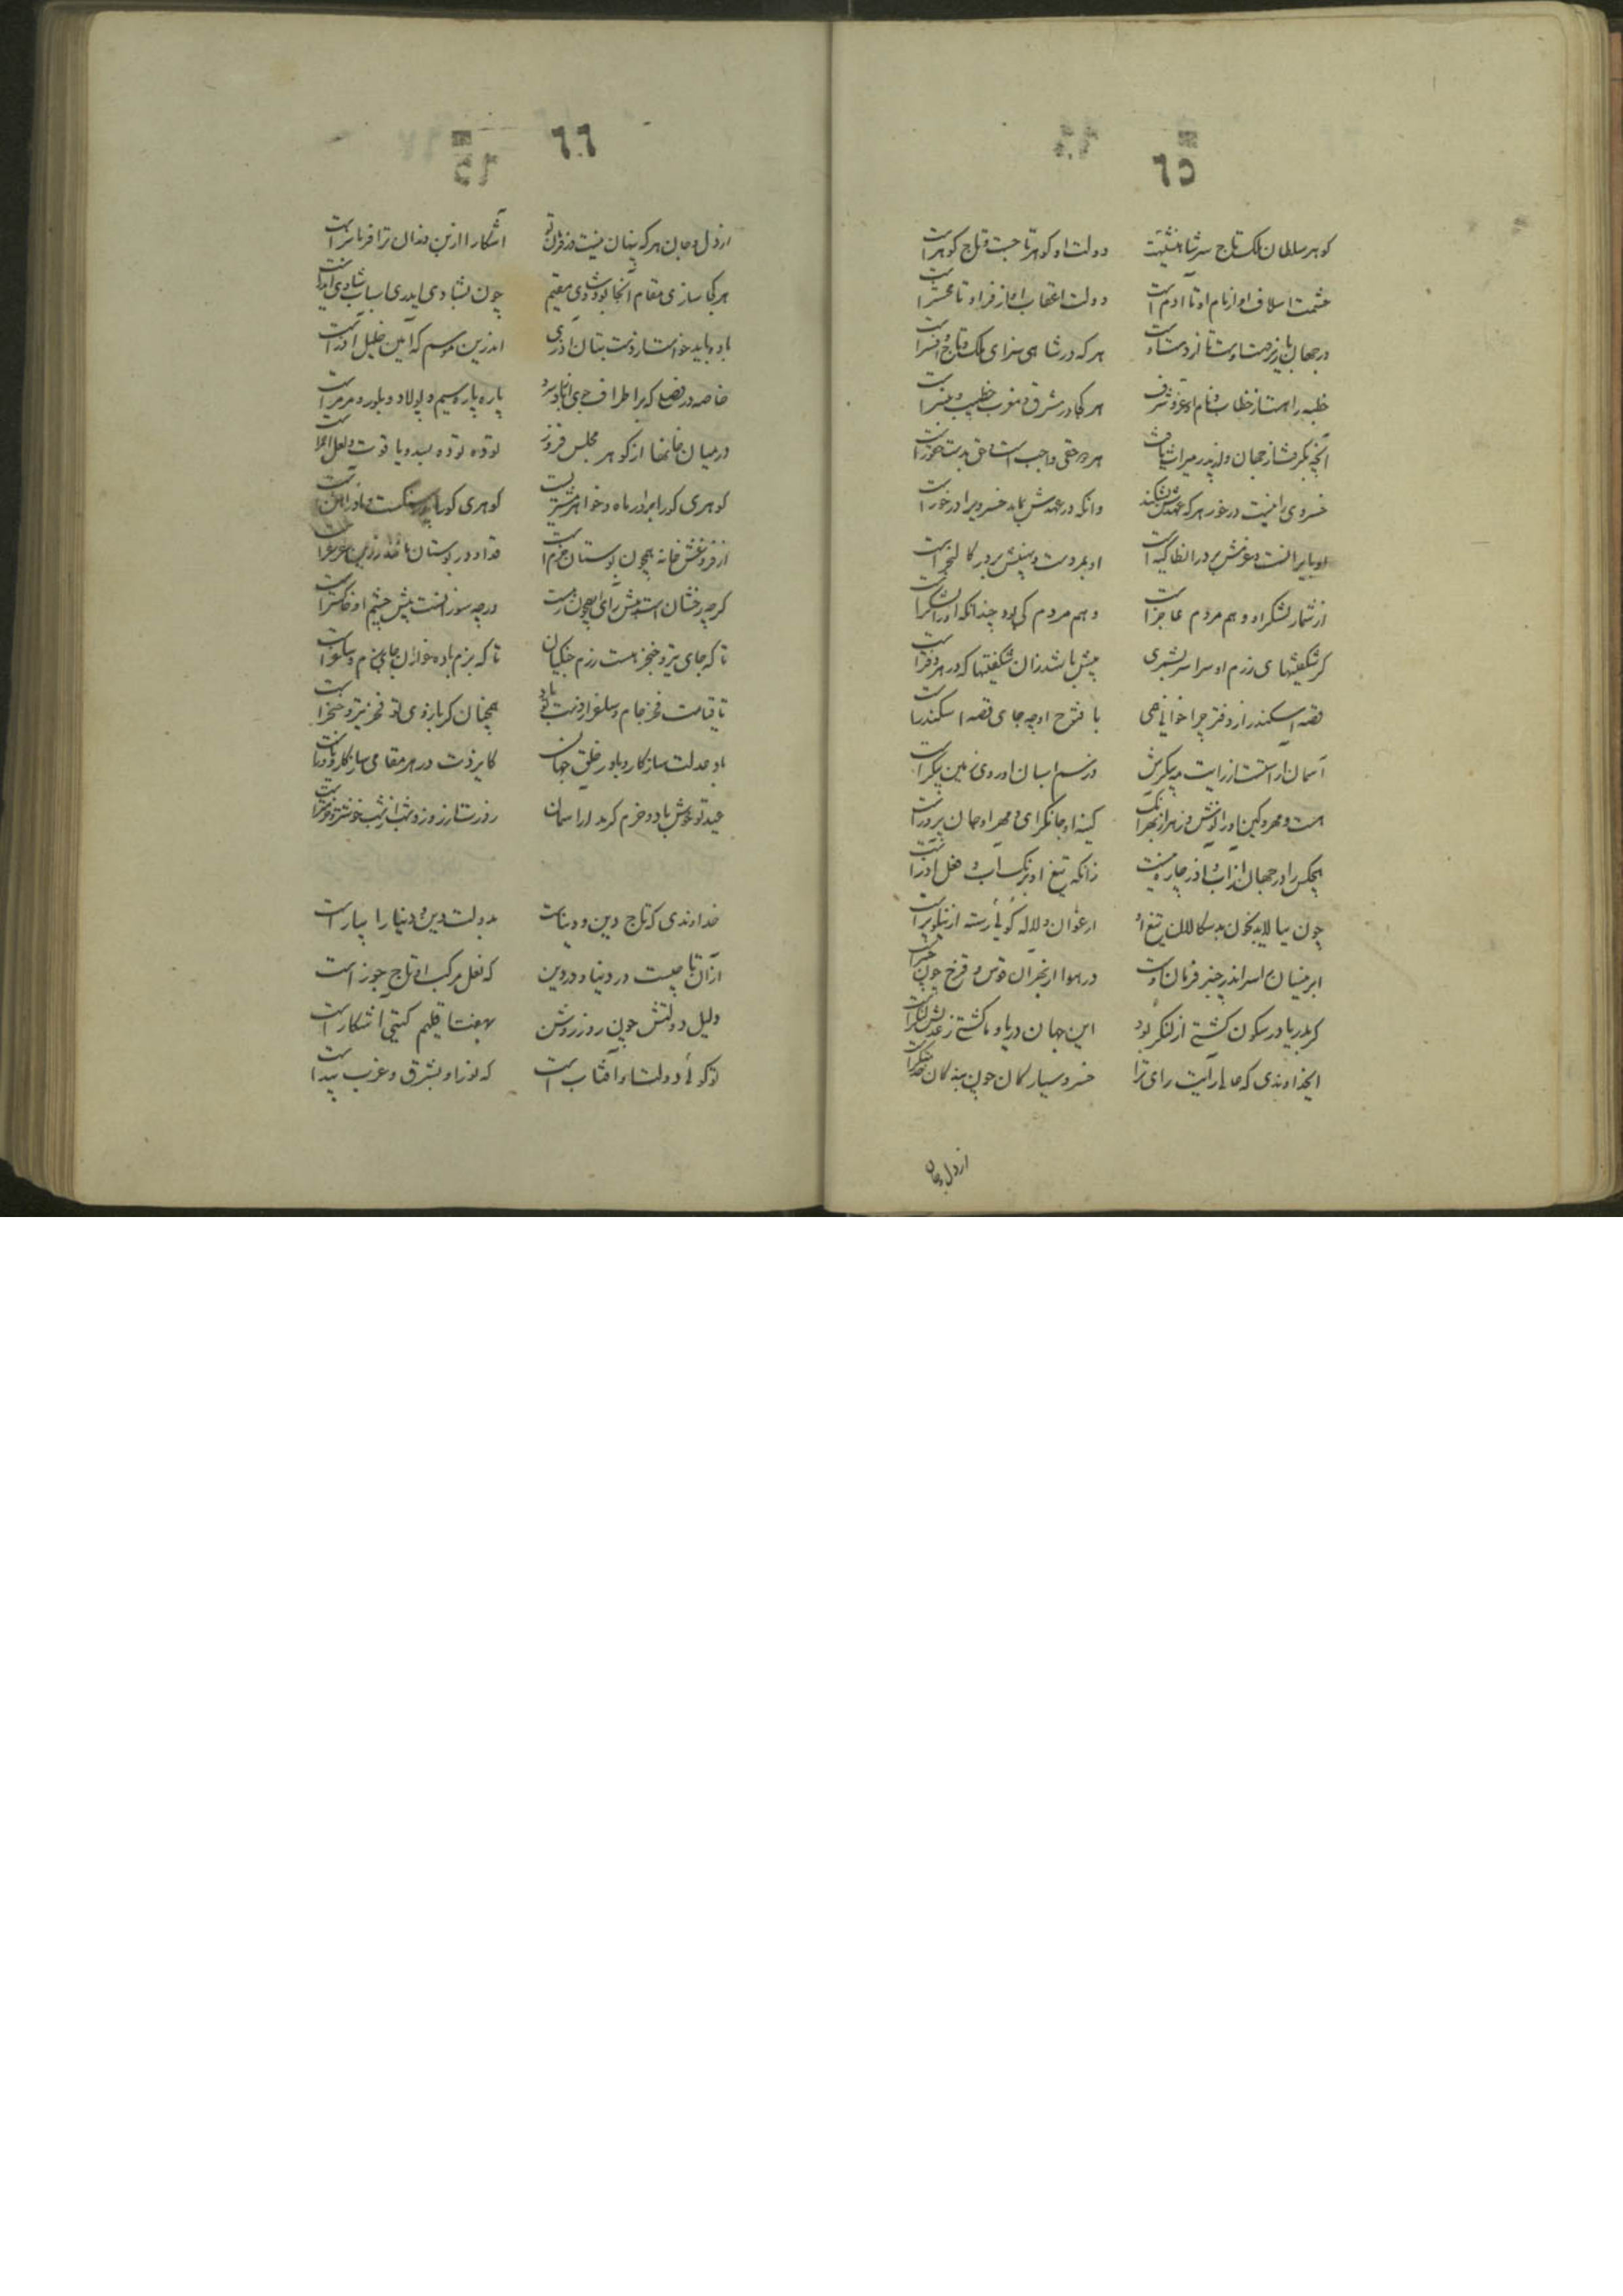 ٦٥
کوهر سلطان ملک تاج سر شاهنشهیت دولت او کوهر تاجست و تاج کوهر است
حشمت اسلاف او از نام او تا ادم است دولت اعقاب او از فر او تا محشر است
در جهان باید زدست اوست تا از دست او هر که در شاهی سزای ملک و تاج و افسر است
خطبه را هست از خطاب و نام او عز و شرف هر کجا در مشرق و مغرب خطیب و منبر است
آنچه بکرفت از جهان ولد پدر میراث یافت هر چه حقی واجب است حق بدست حقور است
خسروی را نیست در خور هر که عهدش بشکند وانکه در عهدش بماند خسرویرا در خور است
از شمار لشکر او وهم مردم عاجز است وهم مردم کی بود چندانکه او را لشکر است
کر شکفتیهای رزم او سراسر بشمری بیش باشد زان شکفتیها که در هر دفتر است
قصه اسکندر از دفتر چرا خوانی همی با فتوح او چه جای قصه اسکندر است
آسمان آراستست از رایت مه پیکرش وز سم اسبان او روی زمین پیکر است
هست مهر و کین او را نوش و زهر از بهر انک کینه او جانکزای و مهر او جان پرور است
هیچکس را در جهان از آب و اذر چاره نیست زانکه تیغ او برنک آب و فعل اذر است
چون بیالاید بخون بدسکالان تیغ او ارغوان و لاله کوئی رسته از نیلوفر است
ابر نیسان اسر اندر چنبر فرمان اوست در هوا از بهر ان قوس و قزح چون چنبر است
کر بدریا در سکون کشتی از لنکر بود این جهان دریا و ما کشتی ز عدلش لنکر است
ایخداوندی که ما را رایت رای ترا خسرو سیارکان چون بندکان خدمتکر است
از دل و جان
٦٦
از دل و جان هر که پنهان نیست در فرمان تو آشکارا از بن دندان ترا فرمانبر است
هر کجا سازی مقام آنجا بود شادی مقیم چون بشادی ایدری اسباب شادی ایدر است
باده باید خواست از دست بتان آذری اندرین موسم که آیین خلیل آذر است
خاصه در فصلی که بر اطراف جوی از باد سرد پاره پاره سیم و پولاد و بلور و مرمر است
در میان خانها از کوهر مجلس فروز توده توده بسد و یاقوت و لعل احمر است
کوهری کو را برادر ماه و خواهر مشتریست کوهری کو را پدر سنکست و مادر آهن است
از فروغش خانه همچون بوستان خرم است
کرچه رخشان است پیش رای او چون ذره‌ست ورچه سوزانست پیش چشم او خاکستر است
تا که جای تیر و خنجر هست رزم جنکیان تا که بزم باده خواران جای جام و ساغر است
تا قیامت فخر جام و ساغر از دست تو باد همچنان کز بازوی تو فخر تیر و خنجر است
باد عدلت سازکار و یاور خلق جهان کایزدت در هر مقامی سازکار و یاور است
عید تو خوش باد و خرم کردد از آسمان روزت از روز و شب از شب خوشتر و خرمتر است
خداوندی که تاج دین و دنیاست بدولت دین و دنیا را بیاراست
از آن تا جیست در دنیا و در دین که نعل مرکب او تاج جوزاست
دلیل دولتش چون روز روشن بهفت اقلیم کیتی آشکار است
تو کوئی دولت او آفتاب است که نور او بشرق و غرب پیدا است